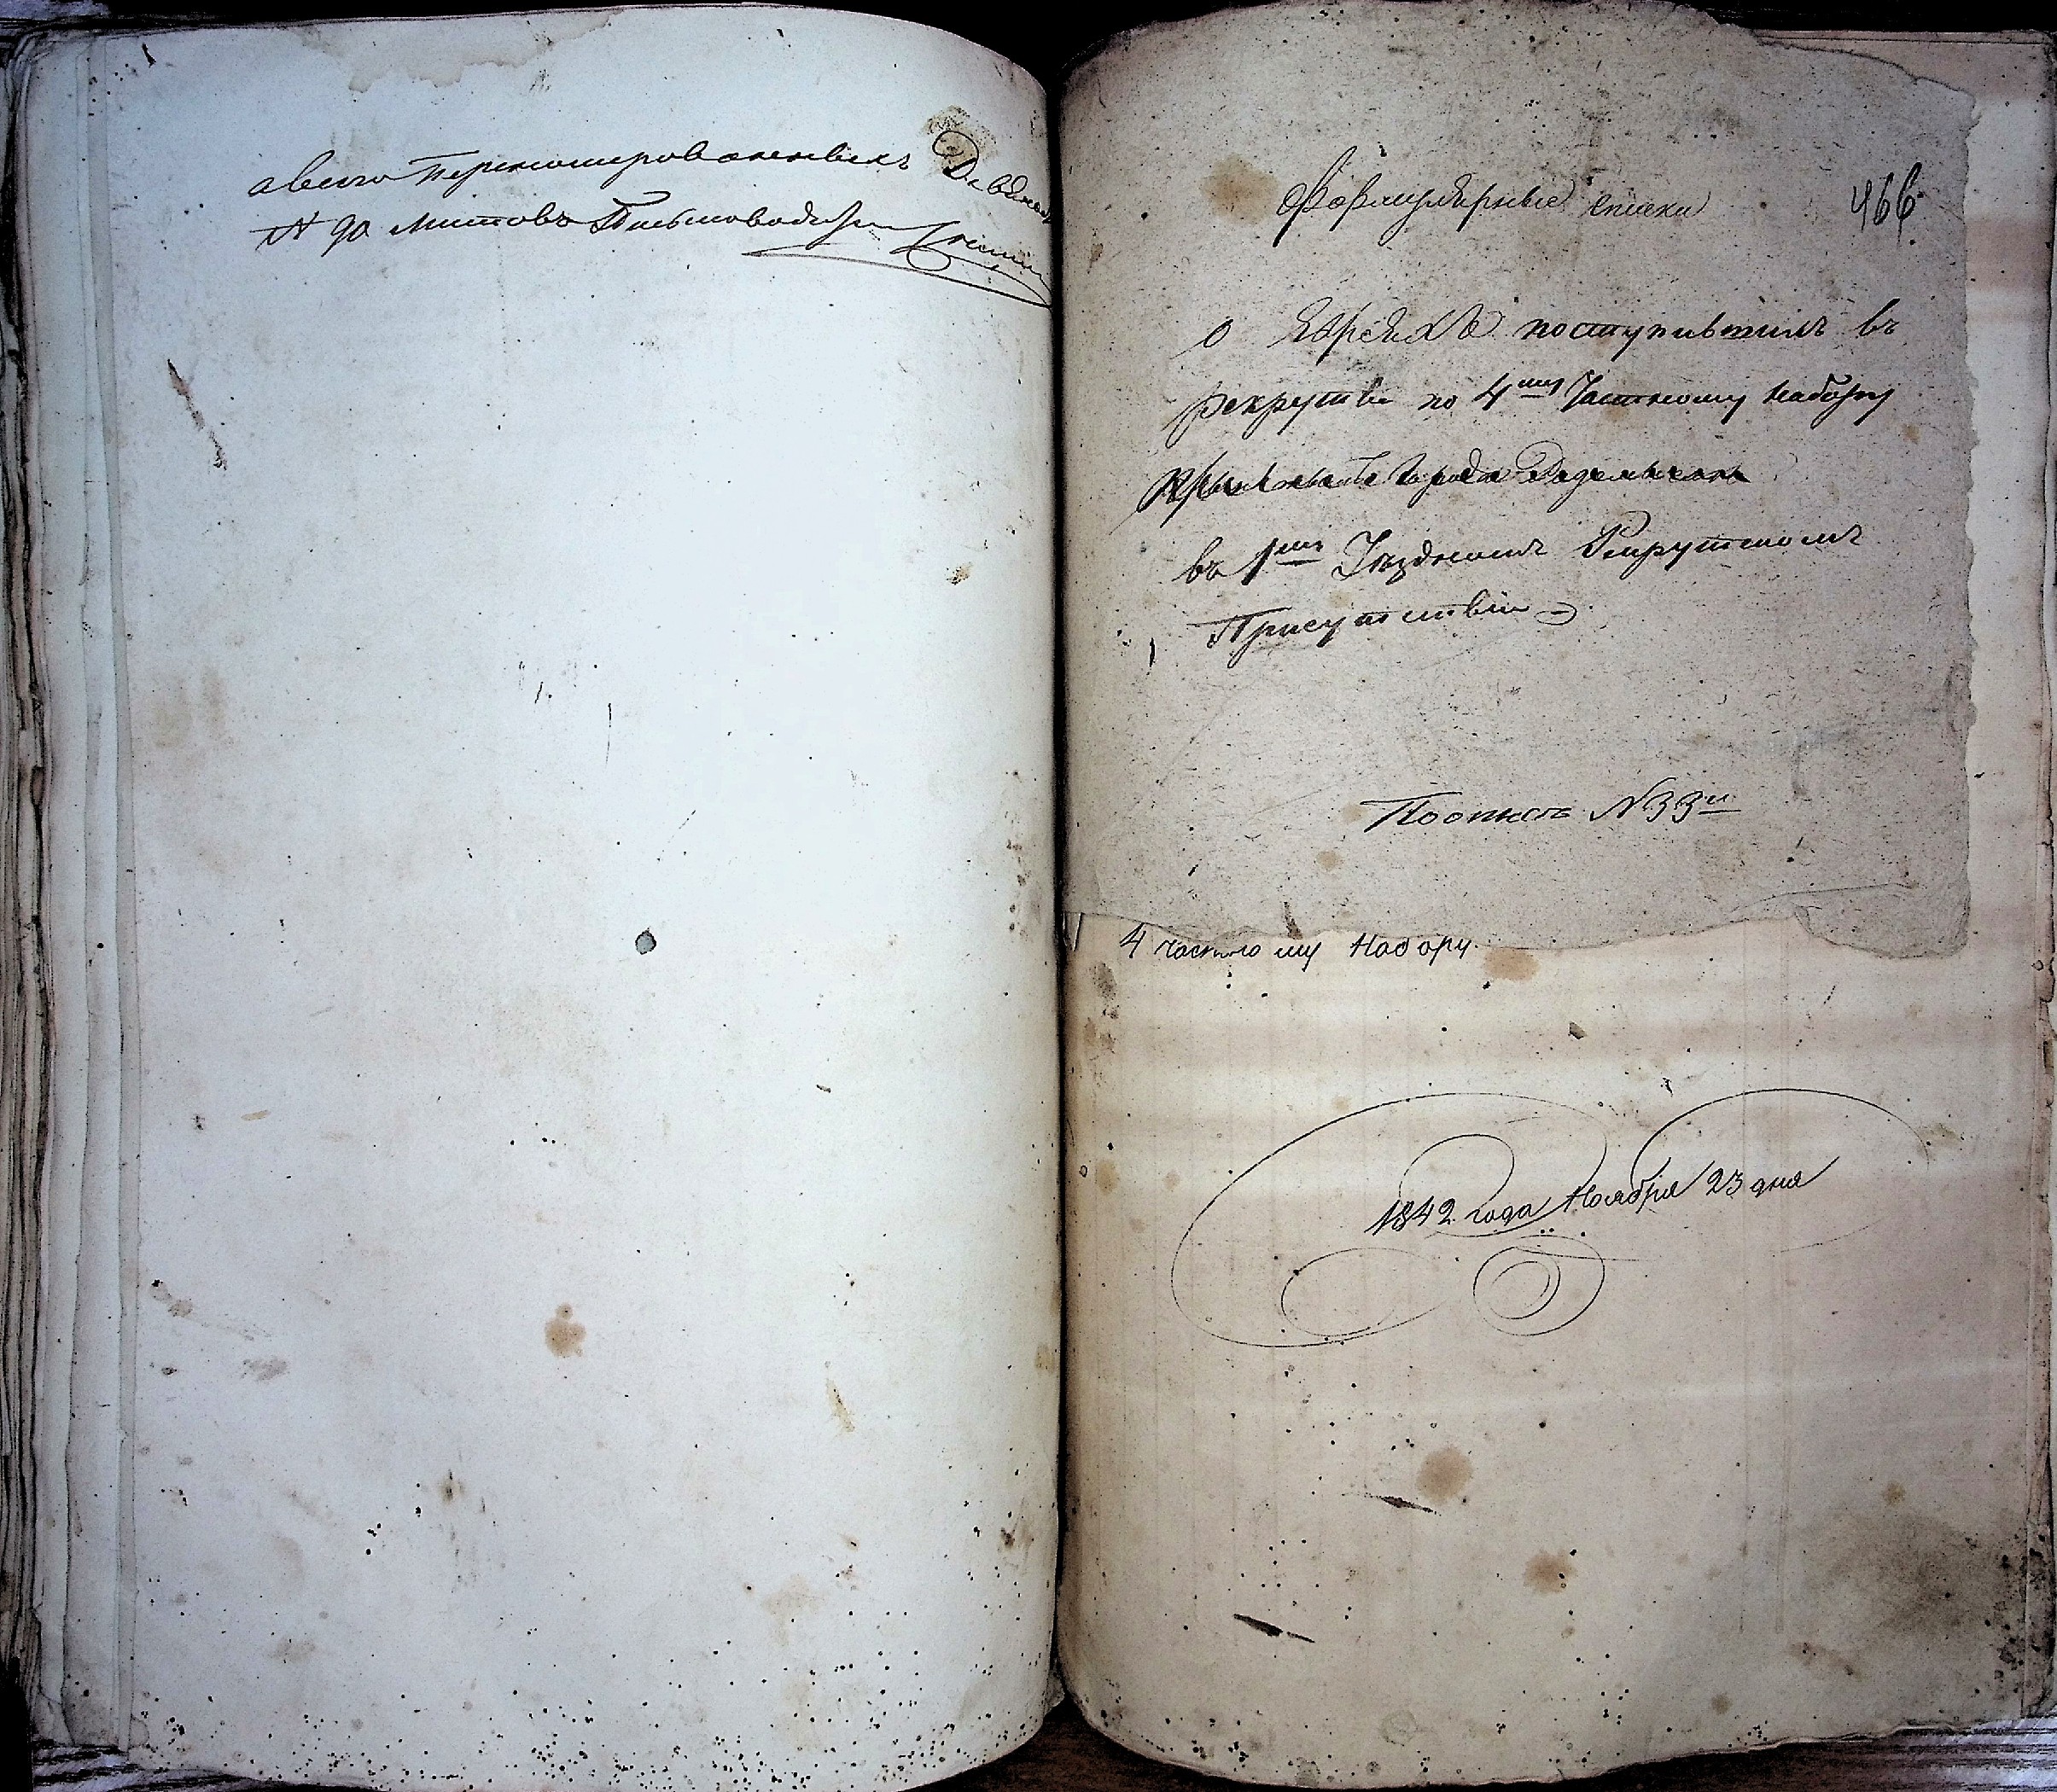 а всего перенумерованныхъ Девяносто
№ 90 листовъ Письмоводитель
Формулярные списки
466.
о Евреяхъ поступившихъ въ
рекруты по 4му Частному набору
города Радомысля
въ 1мъ Уѣздномъ Рекрутскомъ
Присутствіи
По описи № 33й
4 частному Набору.
1842 года Ноября 23 дня